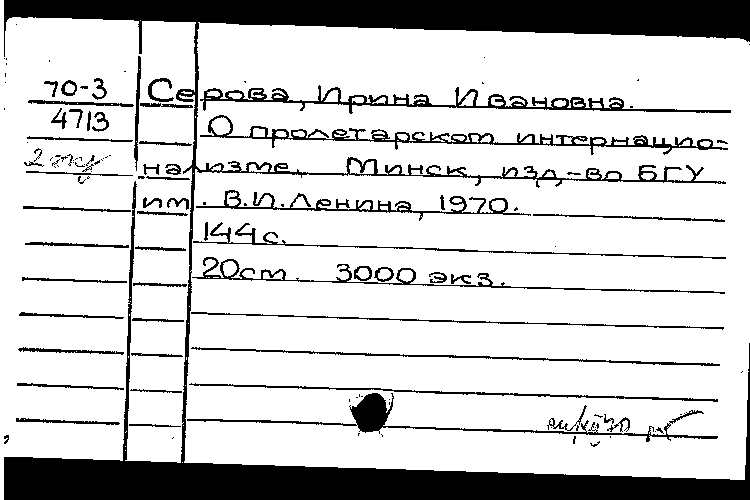 70-3 Серова, Ирина Ивановна.
4713 О пролетарском интернацио=
2 экз нализме. Минск, изд-во БГУ
им. В.И.Ленина, 1970.
144 с.
20 см. 3000 экз.